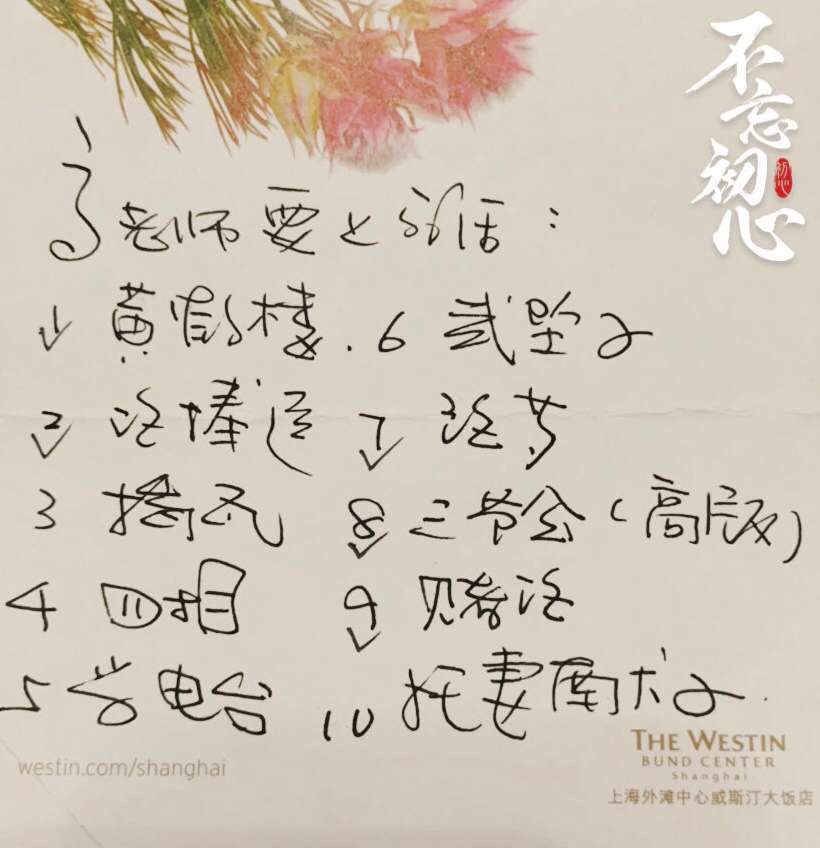 不忘初心
初心
高老师要的活：
1 黄鹤楼. 6 武坠子
2 论捧逗 7 论
3 8 三节会（高版）
4 四相 9 赌论
5 学电台 10 托妻献子.
THE WESTIN
BUND CENTER
Shanghai
westin.com/shanghai
上海外滩中心威斯汀大饭店